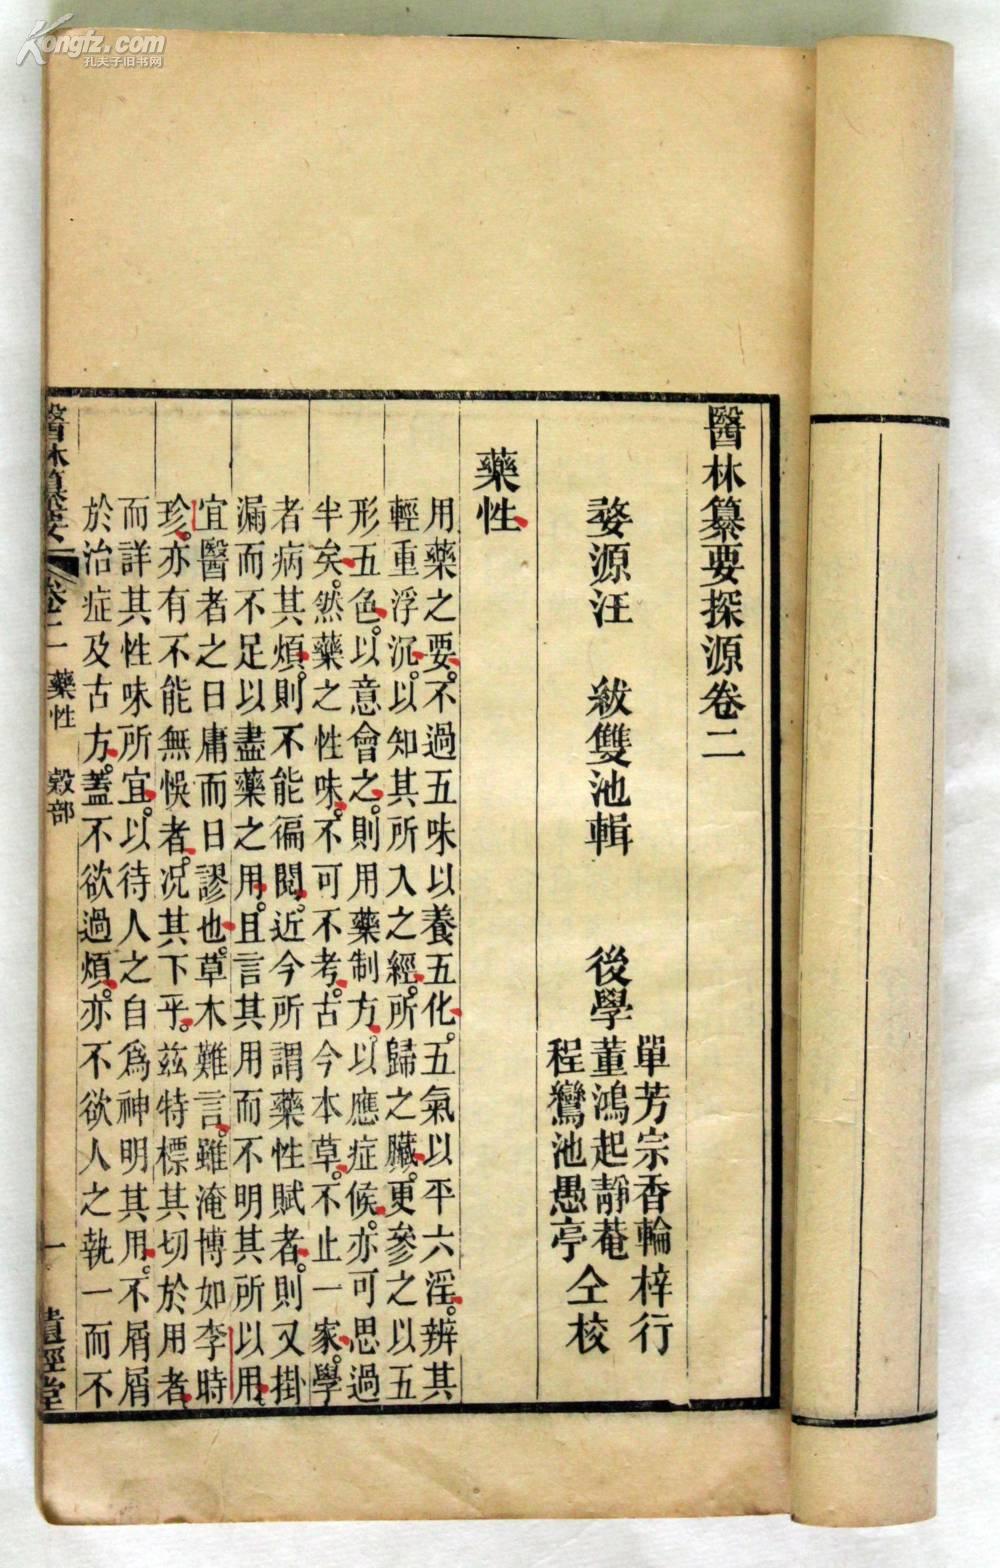 Kongfz.com
孔夫子旧书网
醫林纂要探源卷二
婺源汪　紱雙池輯　後學
單芳宗香輪梓行
董鴻起靜菴
程鸞池愚亭
仝校
藥性
用藥之要。不過五味以養五化。五氣以平六淫。辨其
輕重浮沉。以知其所入之經。所歸之臟。更參之以五
形五色。以意會之。則用藥制方。以應症候。亦可思過
半矣。然藥之性味。不可不考。古今本草。不止一家。學
者病其煩。則不能徧閱。近今所謂藥性賦者。則又掛
漏而不足以盡藥之用。且言其用而不明其所以用。
宜醫者之日庸而日謬也。草木難言。雖淹博如李時
珍。亦有不能無悞者。况其下乎。茲特標其切於用者。
而詳其性味所宜。以待人之自爲神明其用。不屑屑
於治症及古方。蓋不欲過煩。亦不欲人之執一而不
醫林纂要
卷二
藥性
穀部
一
遺經堂